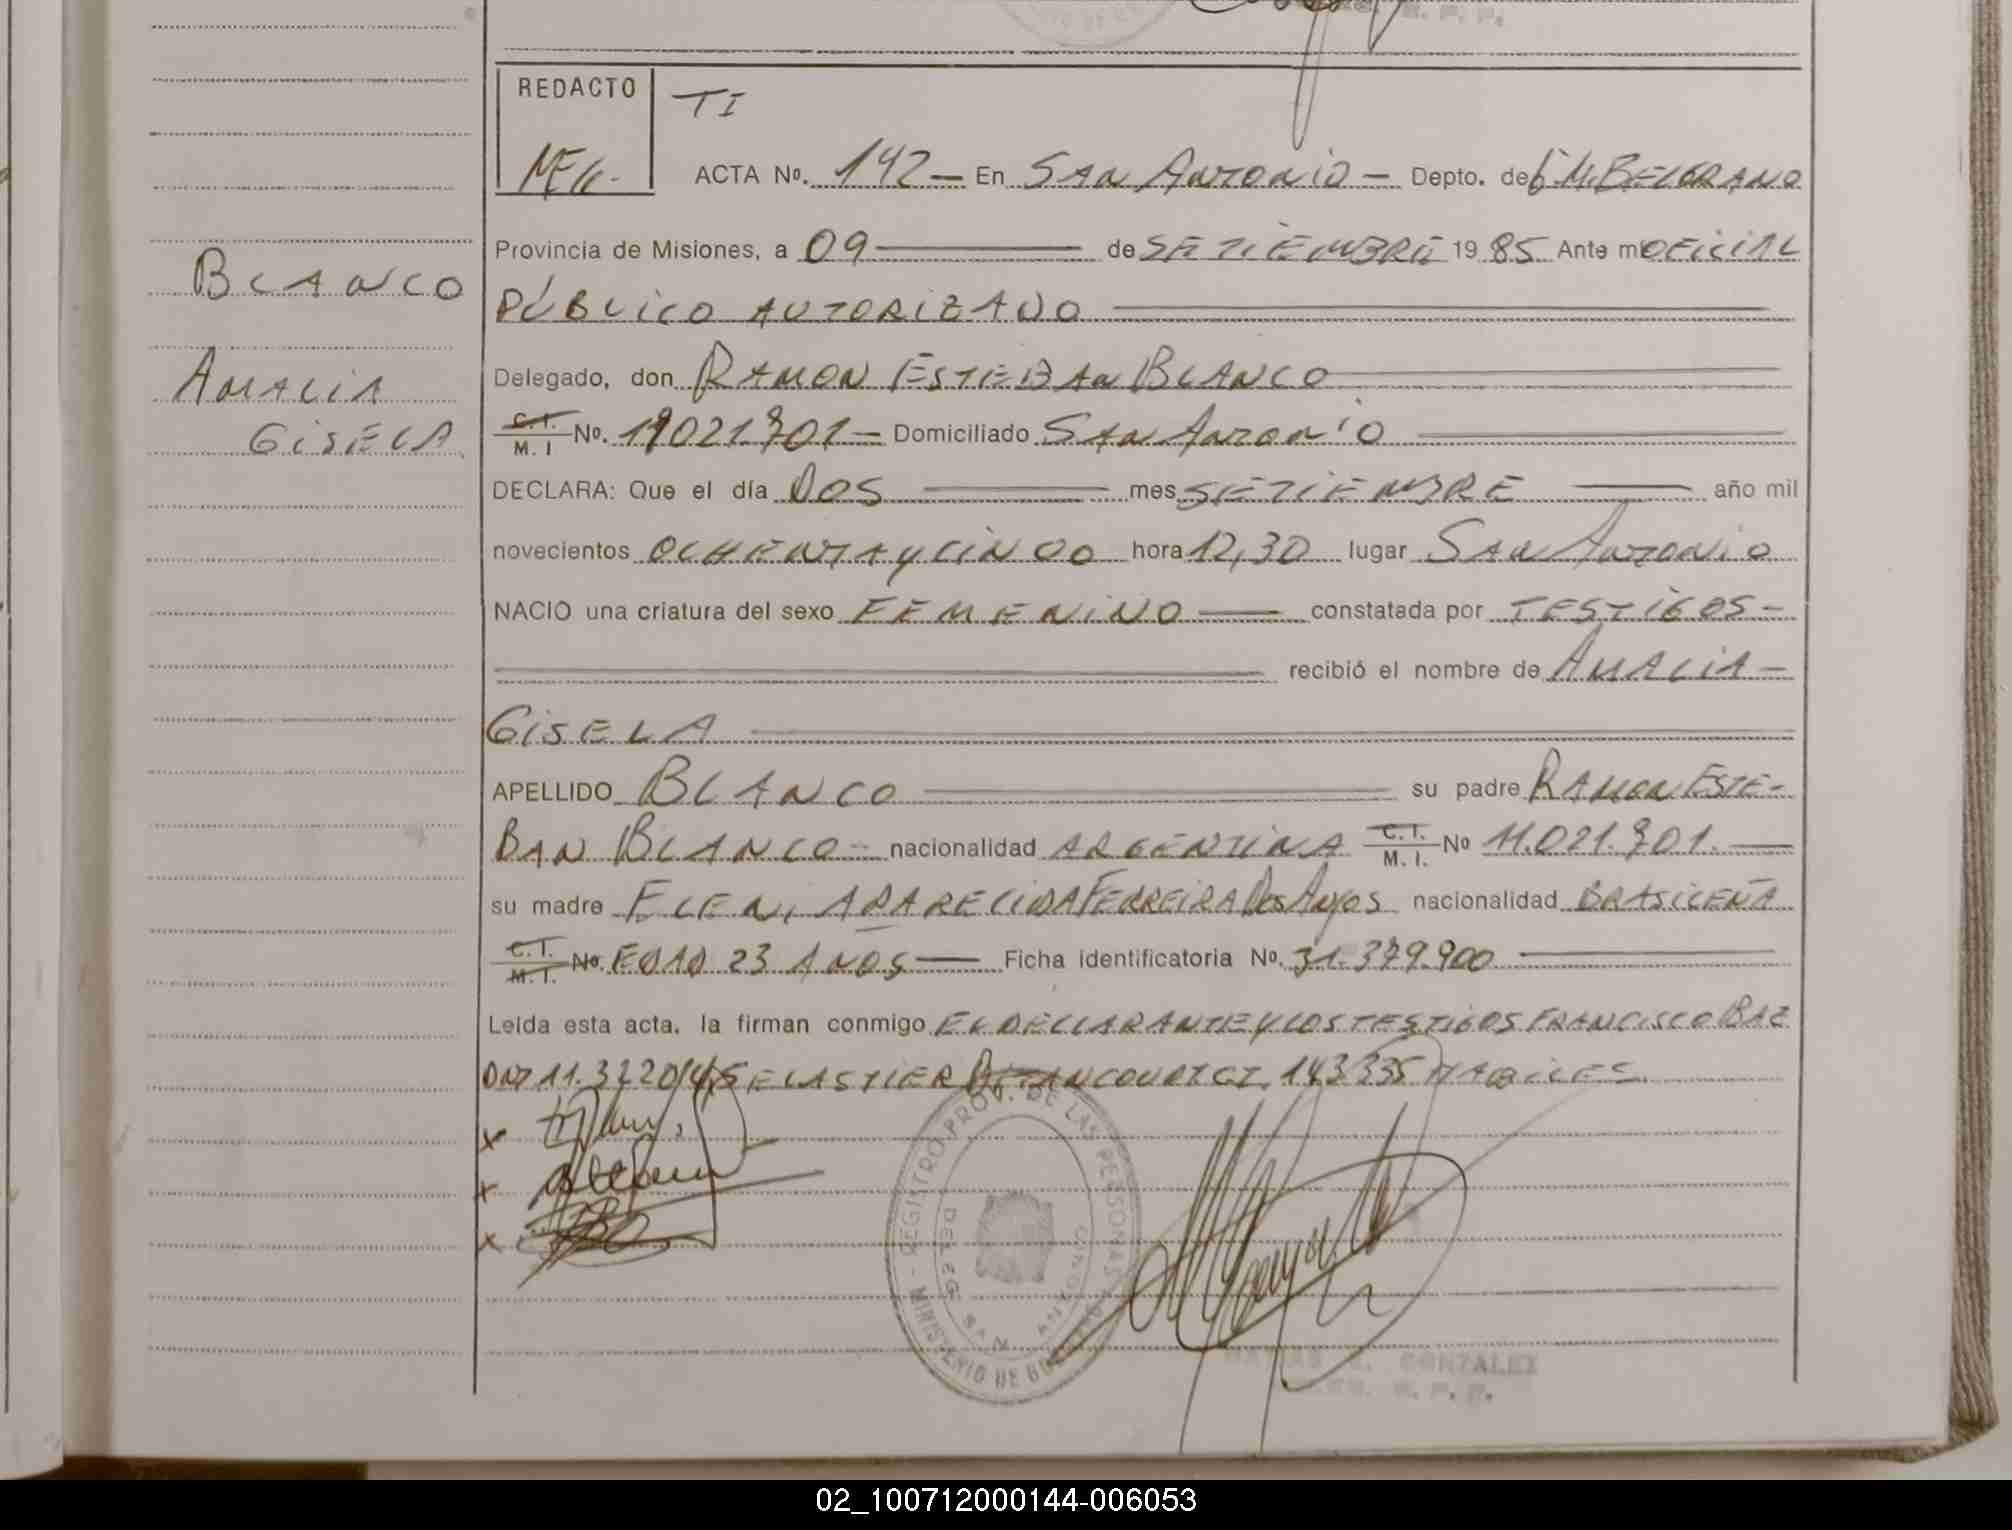 REDACTO
TI
ACTA No. 142 — En SAN ANTONIO — Depto. de G.M.BELGRANO
Provincia de Misiones, a 09 — de SETIEMBRE 1985 Ante mi OFICIAL
PÚBLICO AUTORIZADO
BLANCO
AMALIA
GISELA
Delegado, don RAMON ESTEBAN BLANCO
C.I. M.I No. 11021901 — Domiciliado SAN ANTONIO
DECLARA: Que el día DOS — mes SETIEMBRE — año mil
novecientos OCHENTA y CINCO hora 12,30 lugar SAN ANTONIO
NACIO una criatura del sexo FEMENINO — constatada por TESTIGOS —
recibió el nombre de AMALIA —
GISELA
APELLIDO BLANCO — su padre RAMON ESTE-
BAN BLANCO — nacionalidad ARGENTINA C.I. M.I. No 11.021.901. —
su madre ELENI APARECIDA FERREIRA Dos Anjos nacionalidad BRASILEÑA
C.I. M.I. No. EDAD 23 AÑOS — Ficha identificatoria No. 31.379.900 —
Leída esta acta, la firman conmigo EL DECLARANTE y LOS TESTIGOS FRANCISCO BAZ
DNI ELASTIER CI. 143335 HABILES
x
x
x
REGISTRO PROV. DE LAS PERSONAS
MINISTERIO DE GOBIERNO
DELEG. SAN ANTONIO
GONZALEZ
02_100712000144-006053